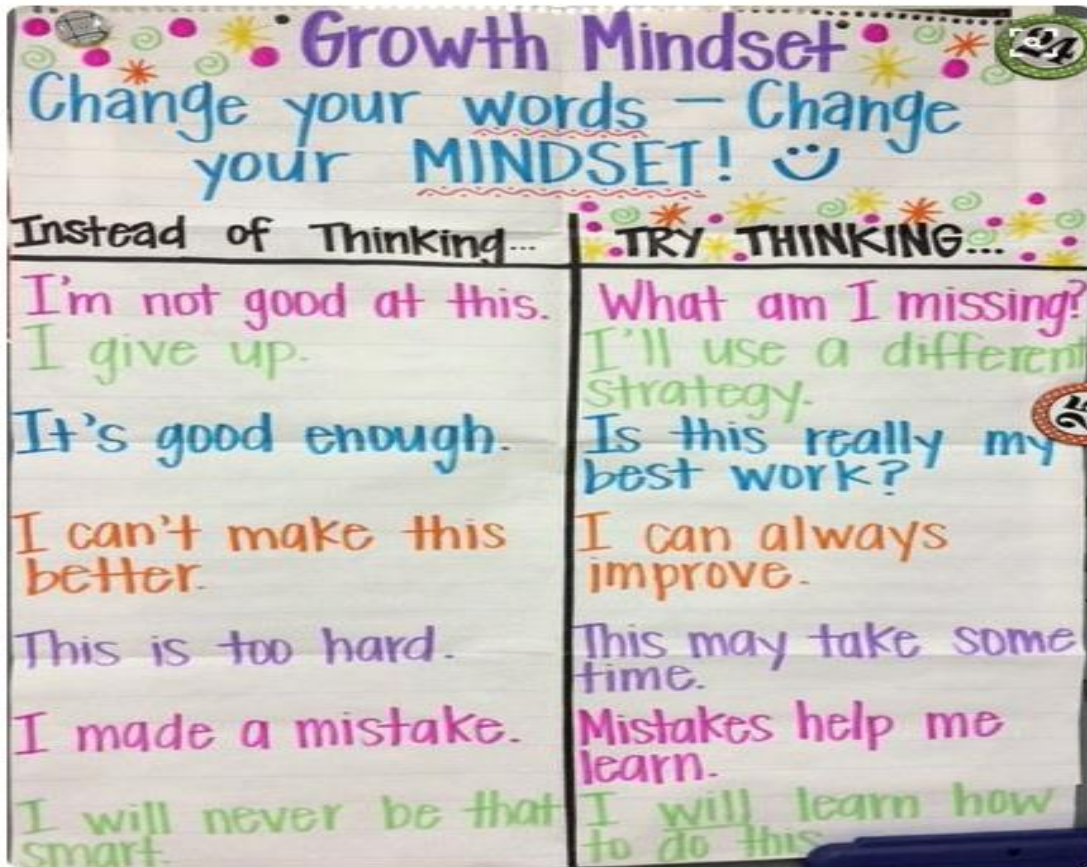 Growth Mindset
24
Change your words – Change
your MINDSET!
Instead of Thinking...
TRY THINKING...
I'm not good at this.
What am I missing?
I give up.
I'll use a different
strategy.
It's good enough.
Is this really my
best work?
I can't make this
better.
I can always
improve.
This is too hard.
This may take some
time.
I made a mistake.
Mistakes help me
learn.
I will never be that
smart.
I will learn how
to do this